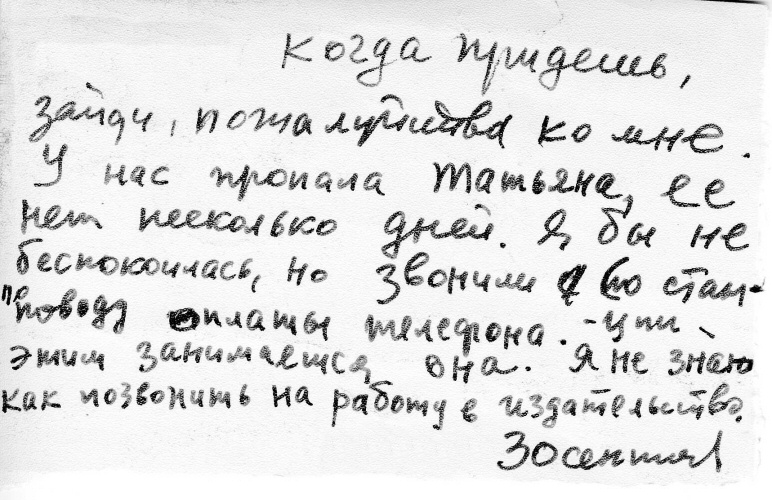 Когда придешь,
зайди, пожалуйста ко мне.
У нас пропала Татьяна, ее
нет несколько дней. Я бы не
беспокоилась, но звонили со стан-
по поводу оплаты телефона. -ции
этим занимается она. Я не знаю
как позвонить на работу в издательство.
30 сентября